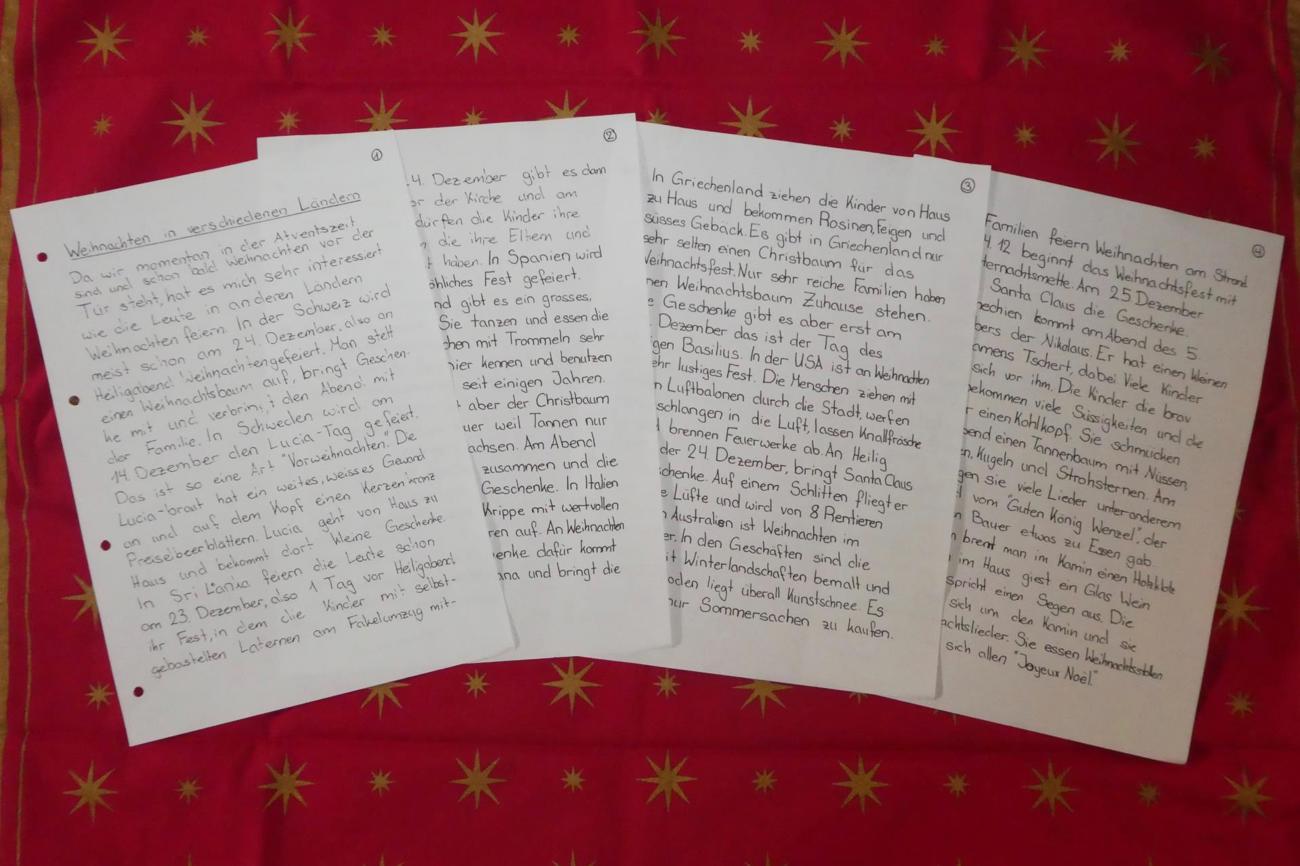 1
Weihnachten in verschiedenen Ländern
Da wir momentan in der Atventszeit
sind und schon bald Weihnachten vor der
Tür steht, hat es mich sehr interessiert
wie die Leute in anderen Ländern
Weihnachten feiern. In der Schweiz wird
meist schon am 24. Dezember, also an
Heiligabend Weihnachtengefeiert. Man stellt
einen Weihnachtsbaum auf, bringt Geschen-
ke mit und verbringt den Abend mit
der Familie. In Schweden wird am
14. Dezember den Lucia-Tag gefeiert.
Das ist so eine Art "Vorweihnachten". De
Lucia-braut hat ein weites, weisses Gewand
an und auf dem Kopf einen Kerzenkranz
Preiselbeerblättern. Lucia geht von Haus zu
Haus und bekommt dort kleine Geschenke.
In Sri Lanka feiern die Leute schon
am 23. Dezember, also 1 Tag vor Heiligabend
ihr Fest, in dem die Kinder mit selbst-
gebastelten Laternen am Fakelumzug mit-
2
4. Dezember gibt es dann
der Kirche und am
dürfen die Kinder ihre
die ihre Eltern und
haben. In Spanien wird
öhliches Fest gefeiert.
nd gibt es ein grosses,
Sie tanzen und essen die
hen mit Trommeln sehr
hier kennen und benutzen
seit einigen Jahren.
aber der Christbaum
uer weil Tannen nur
achsen. Am Abend
zusammen und die
Geschenke. In Italien
Krippe mit wertvollen
ren auf. An Weihnachten
enke dafür kommt
ana und bringt die
3
In Griechenland ziehen die Kinder von Haus
zu Haus und bekommen Rosinen, Feigen und
süsses Gebäck. Es gibt in Griechenland nur
sehr selten einen Christbaum für das
Weihnachtsfest. Nur sehr reiche Familien haben
nen Weihnachtsbaum Zuhause stehen.
e Geschenke gibt es aber erst am
. Dezember das ist der Tag des
gen Basilius. In der USA ist an Weihnachten
ehr lustiges Fest. Die Menschen ziehen mit
n Luftbalonen durch die Stadt, werfen
schlangen in die Luft, lassen Knallfrösche
d brennen Feuerwerke ab. An Heilig
der 24. Dezember, bringt Santa Claus
chenke. Auf einem Schlitten fliegt er
e Lüfte und wird von 8 Rentieren
n Australien ist Weihnachten im
er. In den Geschäften sind die
it Winterlandschaften bemalt und
oden liegt überall Kunstschnee. Es
nur Sommersachen zu kaufen.
4
Familien feiern Weihnachten am Strand
4.12 beginnt das Weihnachtsfest mit
ternachtsmette. Am 25. Dezember
Santa Claus die Geschenke.
hechien kommt am Abend des 5.
bers der Nikolaus. Er hat einen kleinen
amens Tschert, dabei. Viele Kinder
sich vor ihm. Die Kinder die brav
bekommen viele Süssigkeiten und die
r einen Kohlkopf. Sie schmücken
bend einen Tannenbaum mit Nüssen,
n, Kugeln und Strohsternen. Am
gen sie viele Lieder unter anderem
vom "Guten König Wenzel", der
n Bauer etwas zu Essen gab.
n brent man im Kamin einen Holzklotz
im Haus giest ein Glas Wein
spricht einen Segen aus. Die
sich um den Kamin und sie
achtslieder. Sie essen Weihnachtsstollen
sich allen "Joyeux Noël."